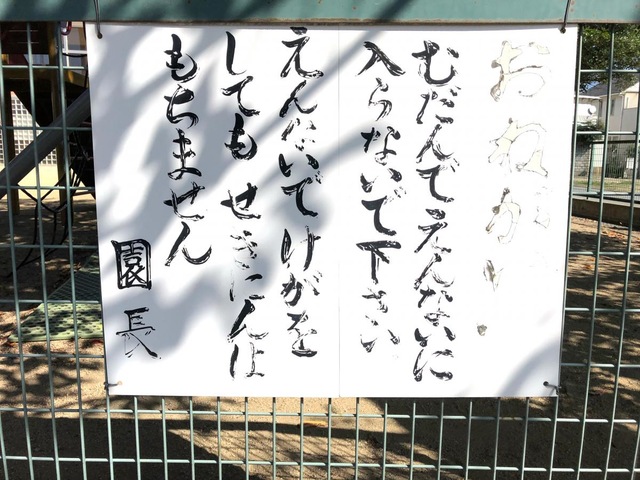 おねがい
むだんでえんないに
入らないで下さい
えんないでけがを
してもせきにんは
もちません
園長